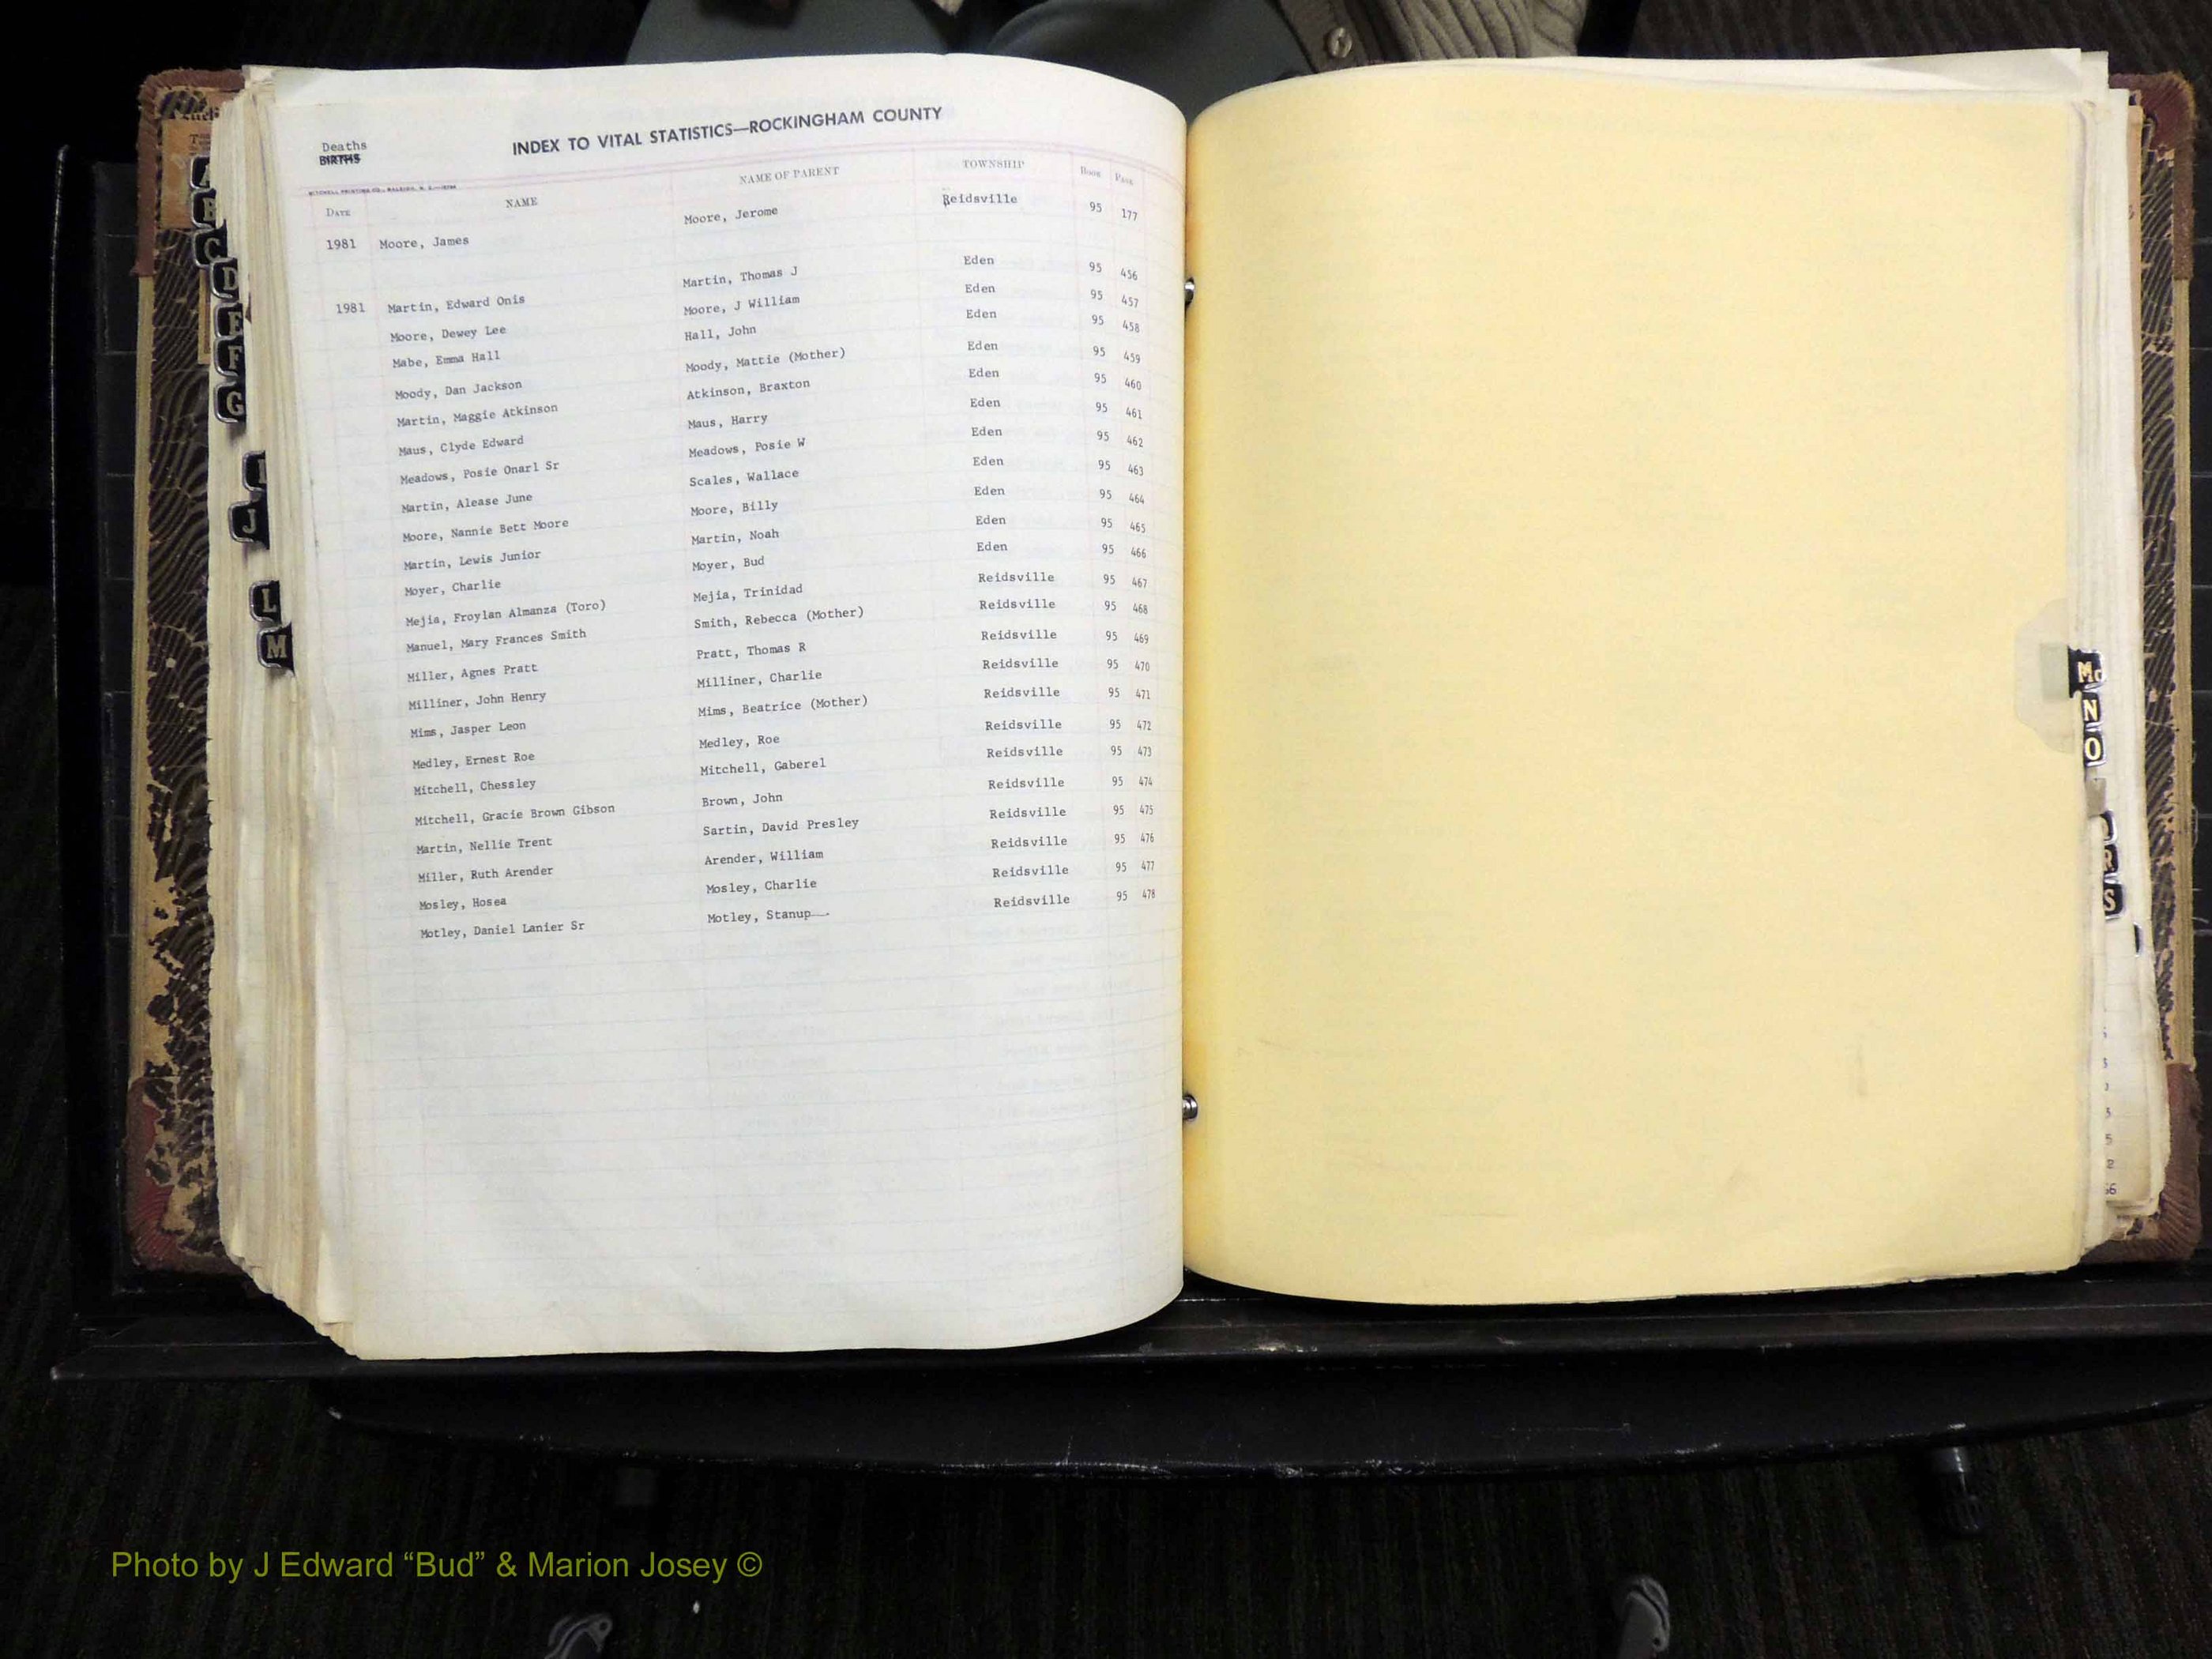 Deaths
BIRTHS
INDEX TO VITAL STATISTICS—ROCKINGHAM COUNTY
MITCHELL PRINTING CO., RALEIGH, N. C.
DATE NAME NAME OF PARENT TOWNSHIP BOOK PAGE
1981 Moore, James Moore, Jerome Reidsville 95 177
1981 Martin, Edward Onis Martin, Thomas J Eden 95 456
Moore, Dewey Lee Moore, J William Eden 95 457
Mabe, Emma Hall Hall, John Eden 95 458
Moody, Dan Jackson Moody, Mattie (Mother) Eden 95 459
Martin, Maggie Atkinson Atkinson, Braxton Eden 95 460
Maus, Clyde Edward Maus, Harry Eden 95 461
Meadows, Posie Onarl Sr Meadows, Posie W Eden 95 462
Martin, Alease June Scales, Wallace Eden 95 463
Moore, Nannie Bett Moore Moore, Billy Eden 95 464
Martin, Lewis Junior Martin, Noah Eden 95 465
Moyer, Charlie Moyer, Bud Eden 95 466
Mejia, Froylan Almanza (Toro) Mejia, Trinidad Reidsville 95 467
Manuel, Mary Frances Smith Smith, Rebecca (Mother) Reidsville 95 468
Miller, Agnes Pratt Pratt, Thomas R Reidsville 95 469
Milliner, John Henry Milliner, Charlie Reidsville 95 470
Mims, Jasper Leon Mims, Beatrice (Mother) Reidsville 95 471
Medley, Ernest Roe Medley, Roe Reidsville 95 472
Mitchell, Chessley Mitchell, Gaberel Reidsville 95 473
Mitchell, Gracie Brown Gibson Brown, John Reidsville 95 474
Martin, Nellie Trent Sartin, David Presley Reidsville 95 475
Miller, Ruth Arender Arender, William Reidsville 95 476
Mosley, Hosea Mosley, Charlie Reidsville 95 477
Motley, Daniel Lanier Sr Motley, Stanup Reidsville 95 478
A
B
C
D
E
F
G
I
J
L
M
Mc
N
O
R
S
Photo by J Edward “Bud” & Marion Josey ©